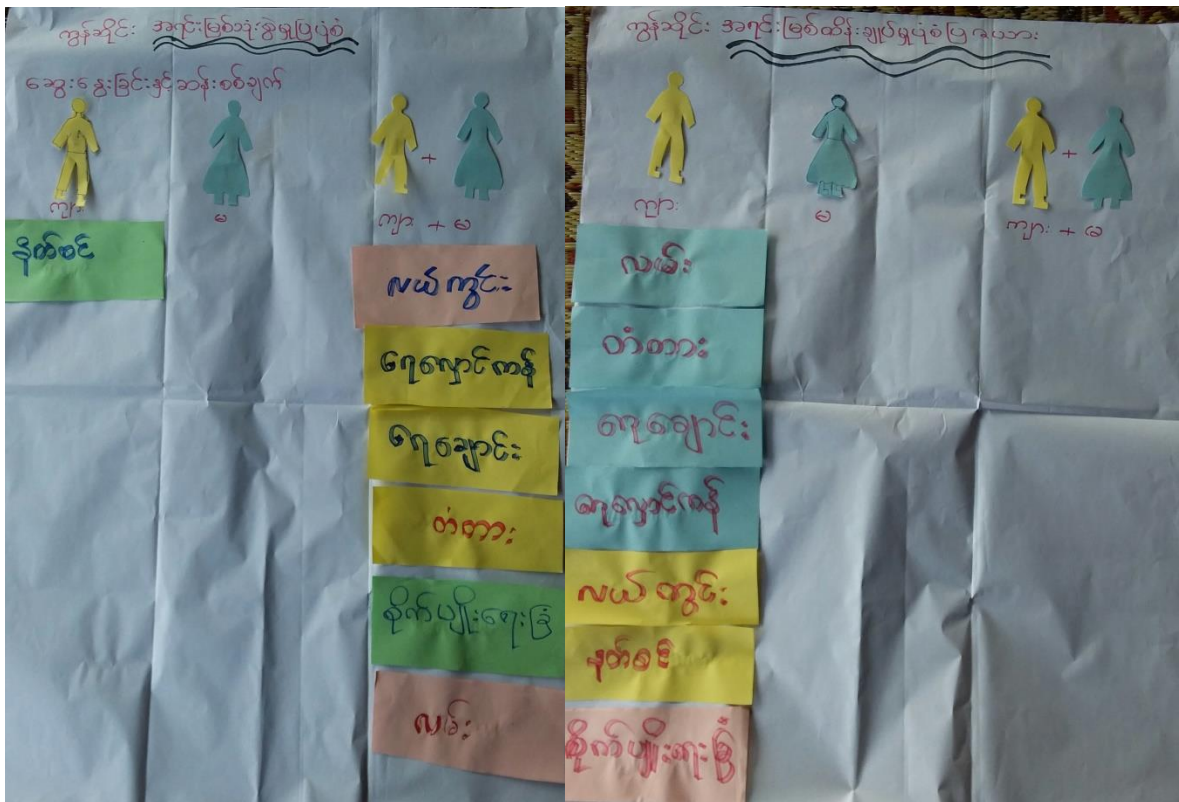 ကွန်ဆိုင်း အရင်းမြစ်သုံးစွဲမှုပြပုံစံ
ဆွေးနွေးခြင်းနှင့်ဆန်းစစ်ချက်
ကျား
မ
+
ကျား + မ
နတ်စင်
လယ်ကွင်း
ရေလှောင်ကန်
ရေချောင်း
တံတား
စိုက်ပျိုးရေးခြံ
လမ်း
ကွန်ဆိုင်း အရင်းမြစ်ထိန်းချုပ်မှုပုံစံပြ ဇယား
ကျား
မ
+
ကျား + မ
လမ်း
တံတား
ရေချောင်း
ရေလှောင်ကန်
လယ်ကွင်း
နတ်စင်
စိုက်ပျိုးရေးခြံ